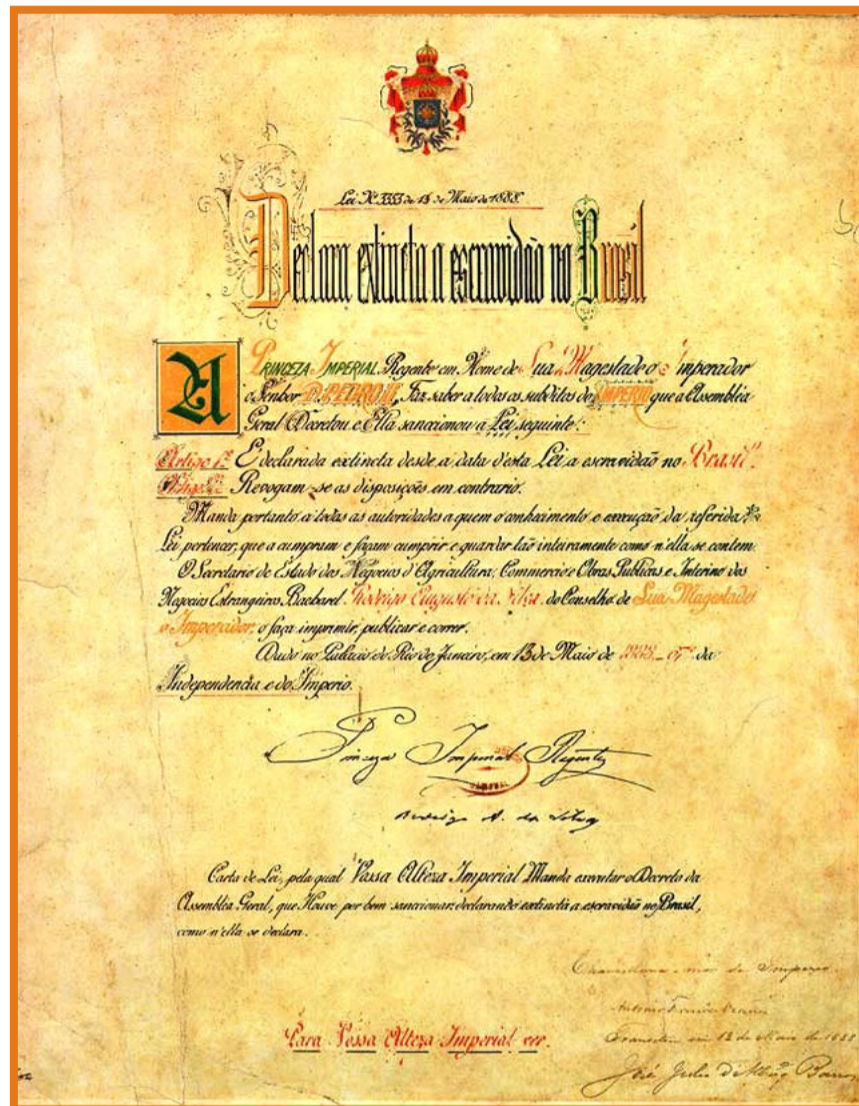 Lei Nº 3353 de 13 de Maio de 1888.
Declara extincta a escravidão no Brasil
A PRINCEZA IMPERIAL Regente em Nome de Sua Magestade o Imperador
o Senhor D. PEDRO II, Faz saber a todos os subditos do IMPERIO que a Assembléa
Geral Decretou e Ella sanccionou a Lei seguinte:
Artigo 1º É declarada extincta desde a data d'esta Lei a escravidão no Brasil.
Artigo 2º Revogam-se as disposições em contrario.
Manda portanto a todas as autoridades a quem o conhecimento e execução da referida
Lei pertencer, que a cumpram e façam cumprir e guardar tão inteiramente como n'ella se contem.
O Secretario de Estado dos Negocios d'Agricultura, Commercio e Obras Publicas e Interino dos
Negocios Estrangeiros Bacharel Rodrigo Augusto da Silva do Conselho de Sua Magestade
o Imperador, o faça imprimir, publicar e correr.
Dado no Palacio do Rio de Janeiro, em 13 de Maio de 1888 67º da
Independencia e do Imperio.
Princeza Imperial Regente
Rodrigo A. da Silva
Carta de Lei, pela qual Vossa Alteza Imperial Manda executar o Decreto da
Assembléa Geral, que Houve por bem sanccionar declarando extincta a escravidão no Brasil,
como n'ella se declara.
Para Vossa Alteza Imperial ver.
Chancellaria-mór do Imperio
Antonio Ferreira Vianna
Transitou em 13 de Maio de 1888
José Julio d'Albuqº Barros